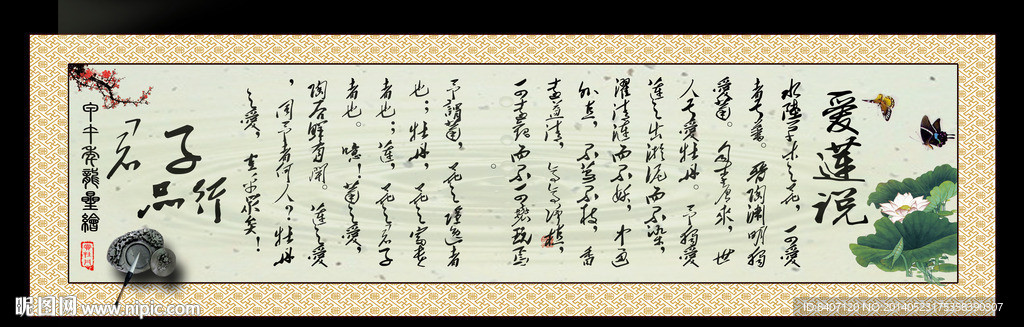 愛蓮说
水陸草木之花，可愛
者甚蕃。晋陶渊明獨
愛菊。自李唐来，世
人甚愛牡丹。予獨愛
蓮之出淤泥而不染，
濯清漣而不妖，中通
外直，不蔓不枝，香
遠益清，亭亭净植，
可遠觀而不可亵玩焉
。
予謂菊，花之隱逸者
也；牡丹，花之富貴
者也；蓮，花之君子
者也。噫！菊之愛，
陶后鲜有闻。蓮之愛
，同予者何人？牡丹
之愛，宜乎眾矣！
「君子
品行
甲午年龍墨繪
昵图网 www.nipic.com
ID:8407120 NO:20140523175338390307